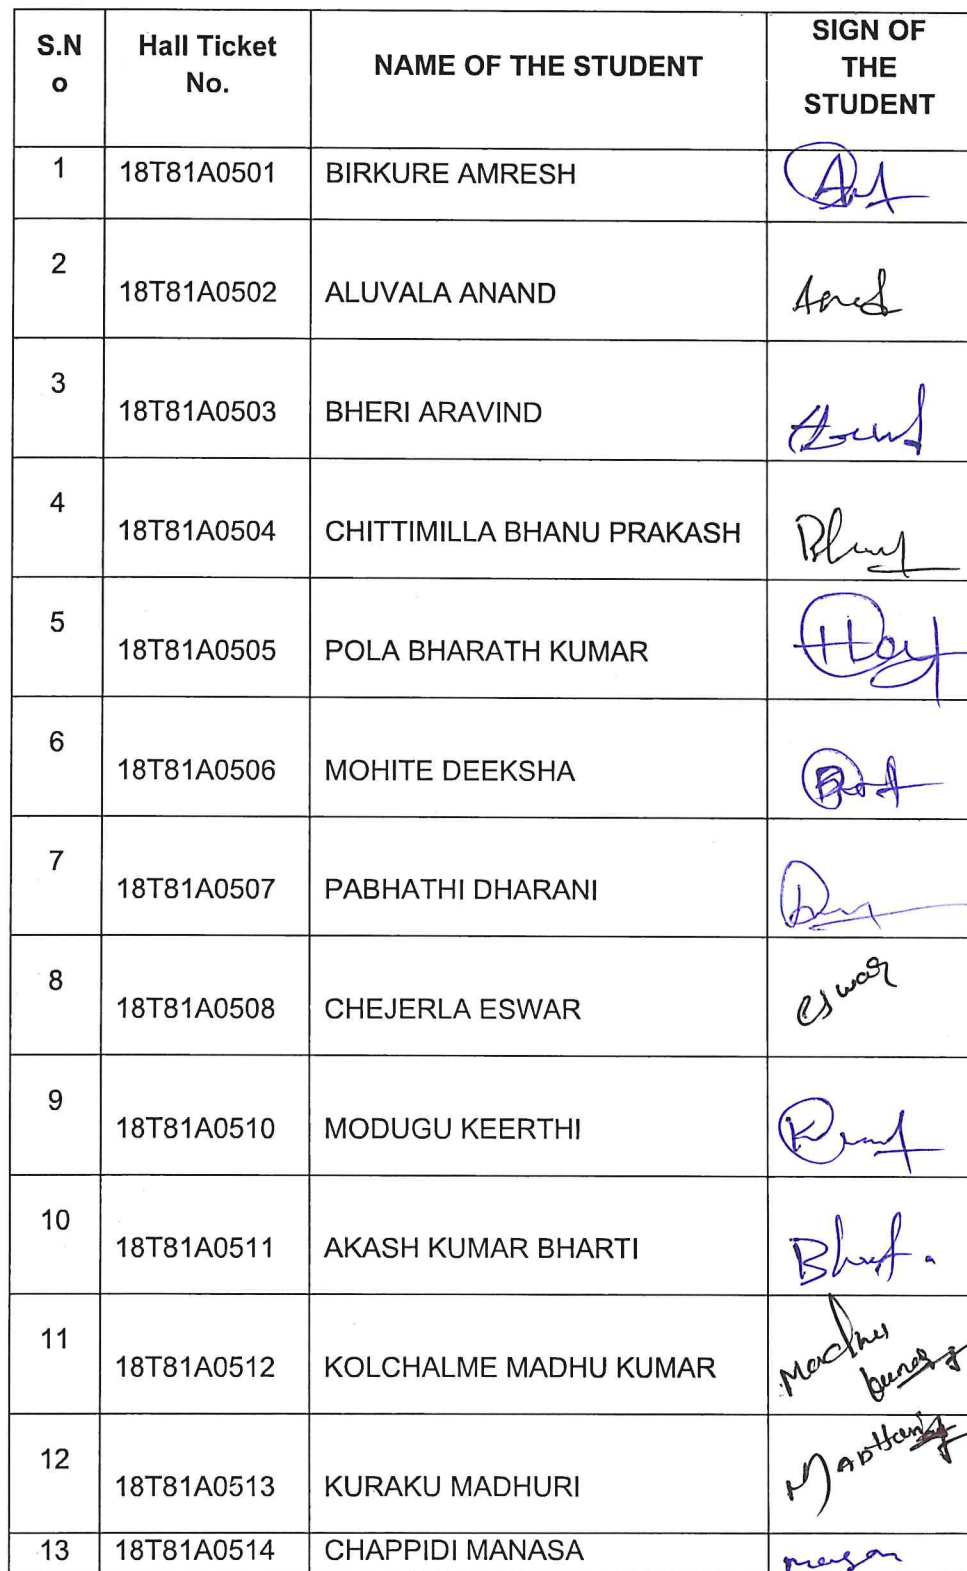 S.N
o
Hall Ticket
No.
NAME OF THE STUDENT
SIGN OF
THE
STUDENT
1 18T81A0501 BIRKURE AMRESH
2 18T81A0502 ALUVALA ANAND
3 18T81A0503 BHERI ARAVIND
4 18T81A0504 CHITTIMILLA BHANU PRAKASH
5 18T81A0505 POLA BHARATH KUMAR
6 18T81A0506 MOHITE DEEKSHA
7 18T81A0507 PABHATHI DHARANI
8 18T81A0508 CHEJERLA ESWAR eswar
9 18T81A0510 MODUGU KEERTHI
10 18T81A0511 AKASH KUMAR BHARTI
11 18T81A0512 KOLCHALME MADHU KUMAR Madhu
12 18T81A0513 KURAKU MADHURI
13 18T81A0514 CHAPPIDI MANASA